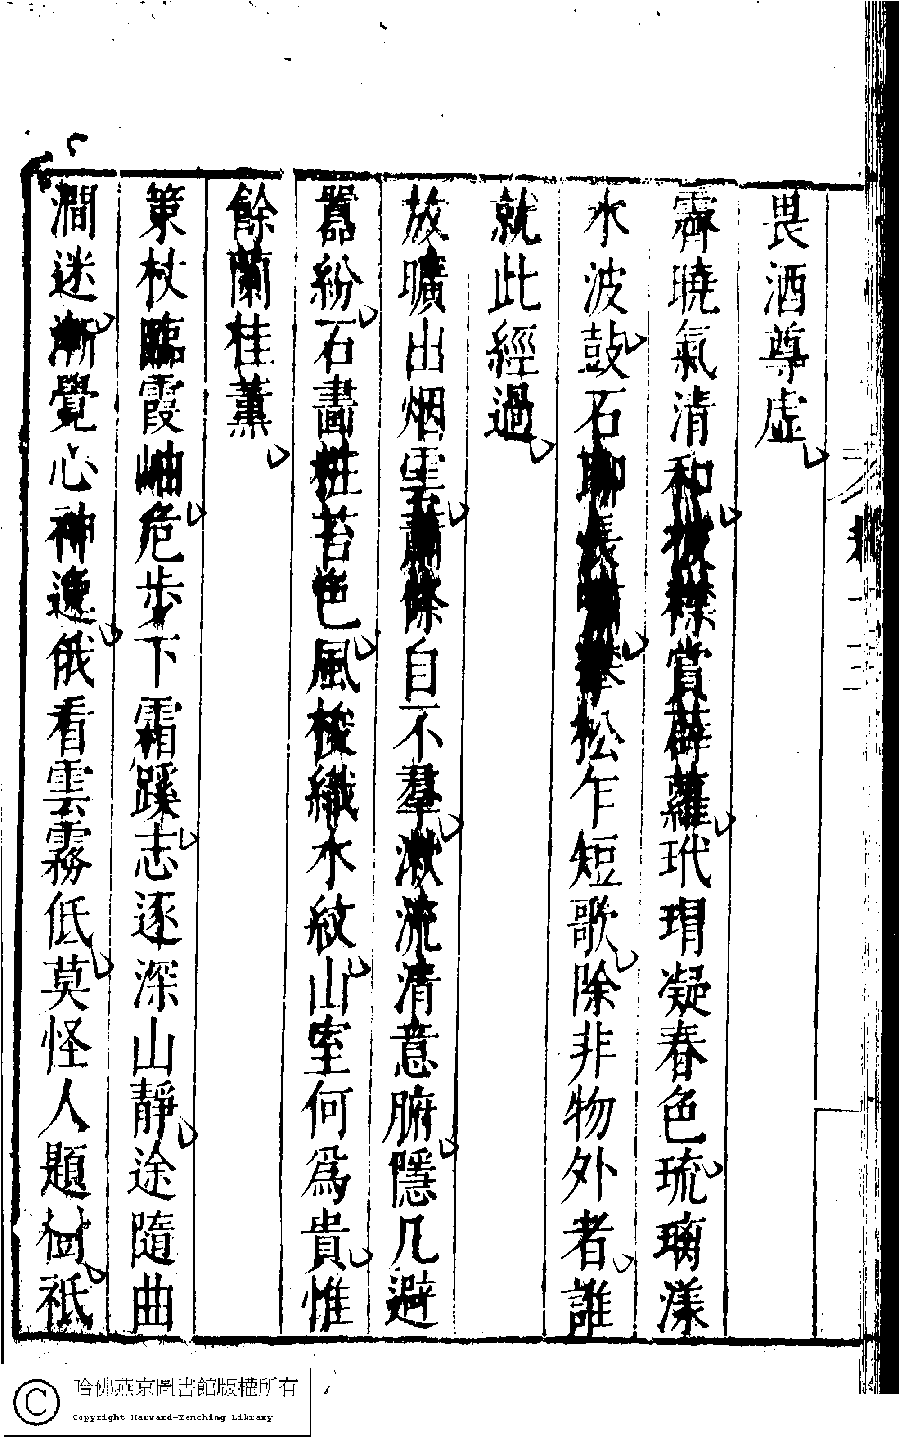 畏酒尊虛
霽曉氣清和披襟賞薜蘿玳瑁凝春色琉璃漾
水波鼓石聊長嘯攀松乍短歌除非物外者誰
就此經過
放曠出烟雲蕭條自不羣漱流清意腑隱几避
囂紛石畵粧苔色風梭織水紋山室何爲貴惟
餘蘭桂薰
策杖臨霞岫危步下霜蹊志逐深山靜途隨曲
澗迷漸覺心神逸俄看雲霧低莫怪人題樹祇
哈佛燕京圖書館版權所有
Copyright Harvard-Yenching Library